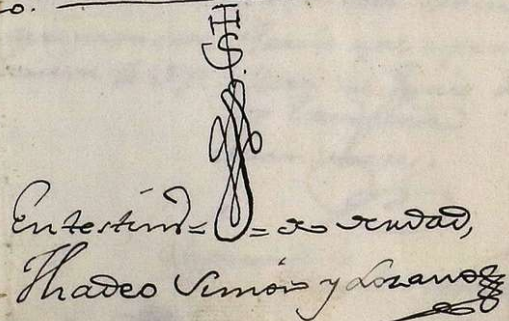 o.
IHS
En testim.º = = de verdad,
Thadeo Simón y Lozano